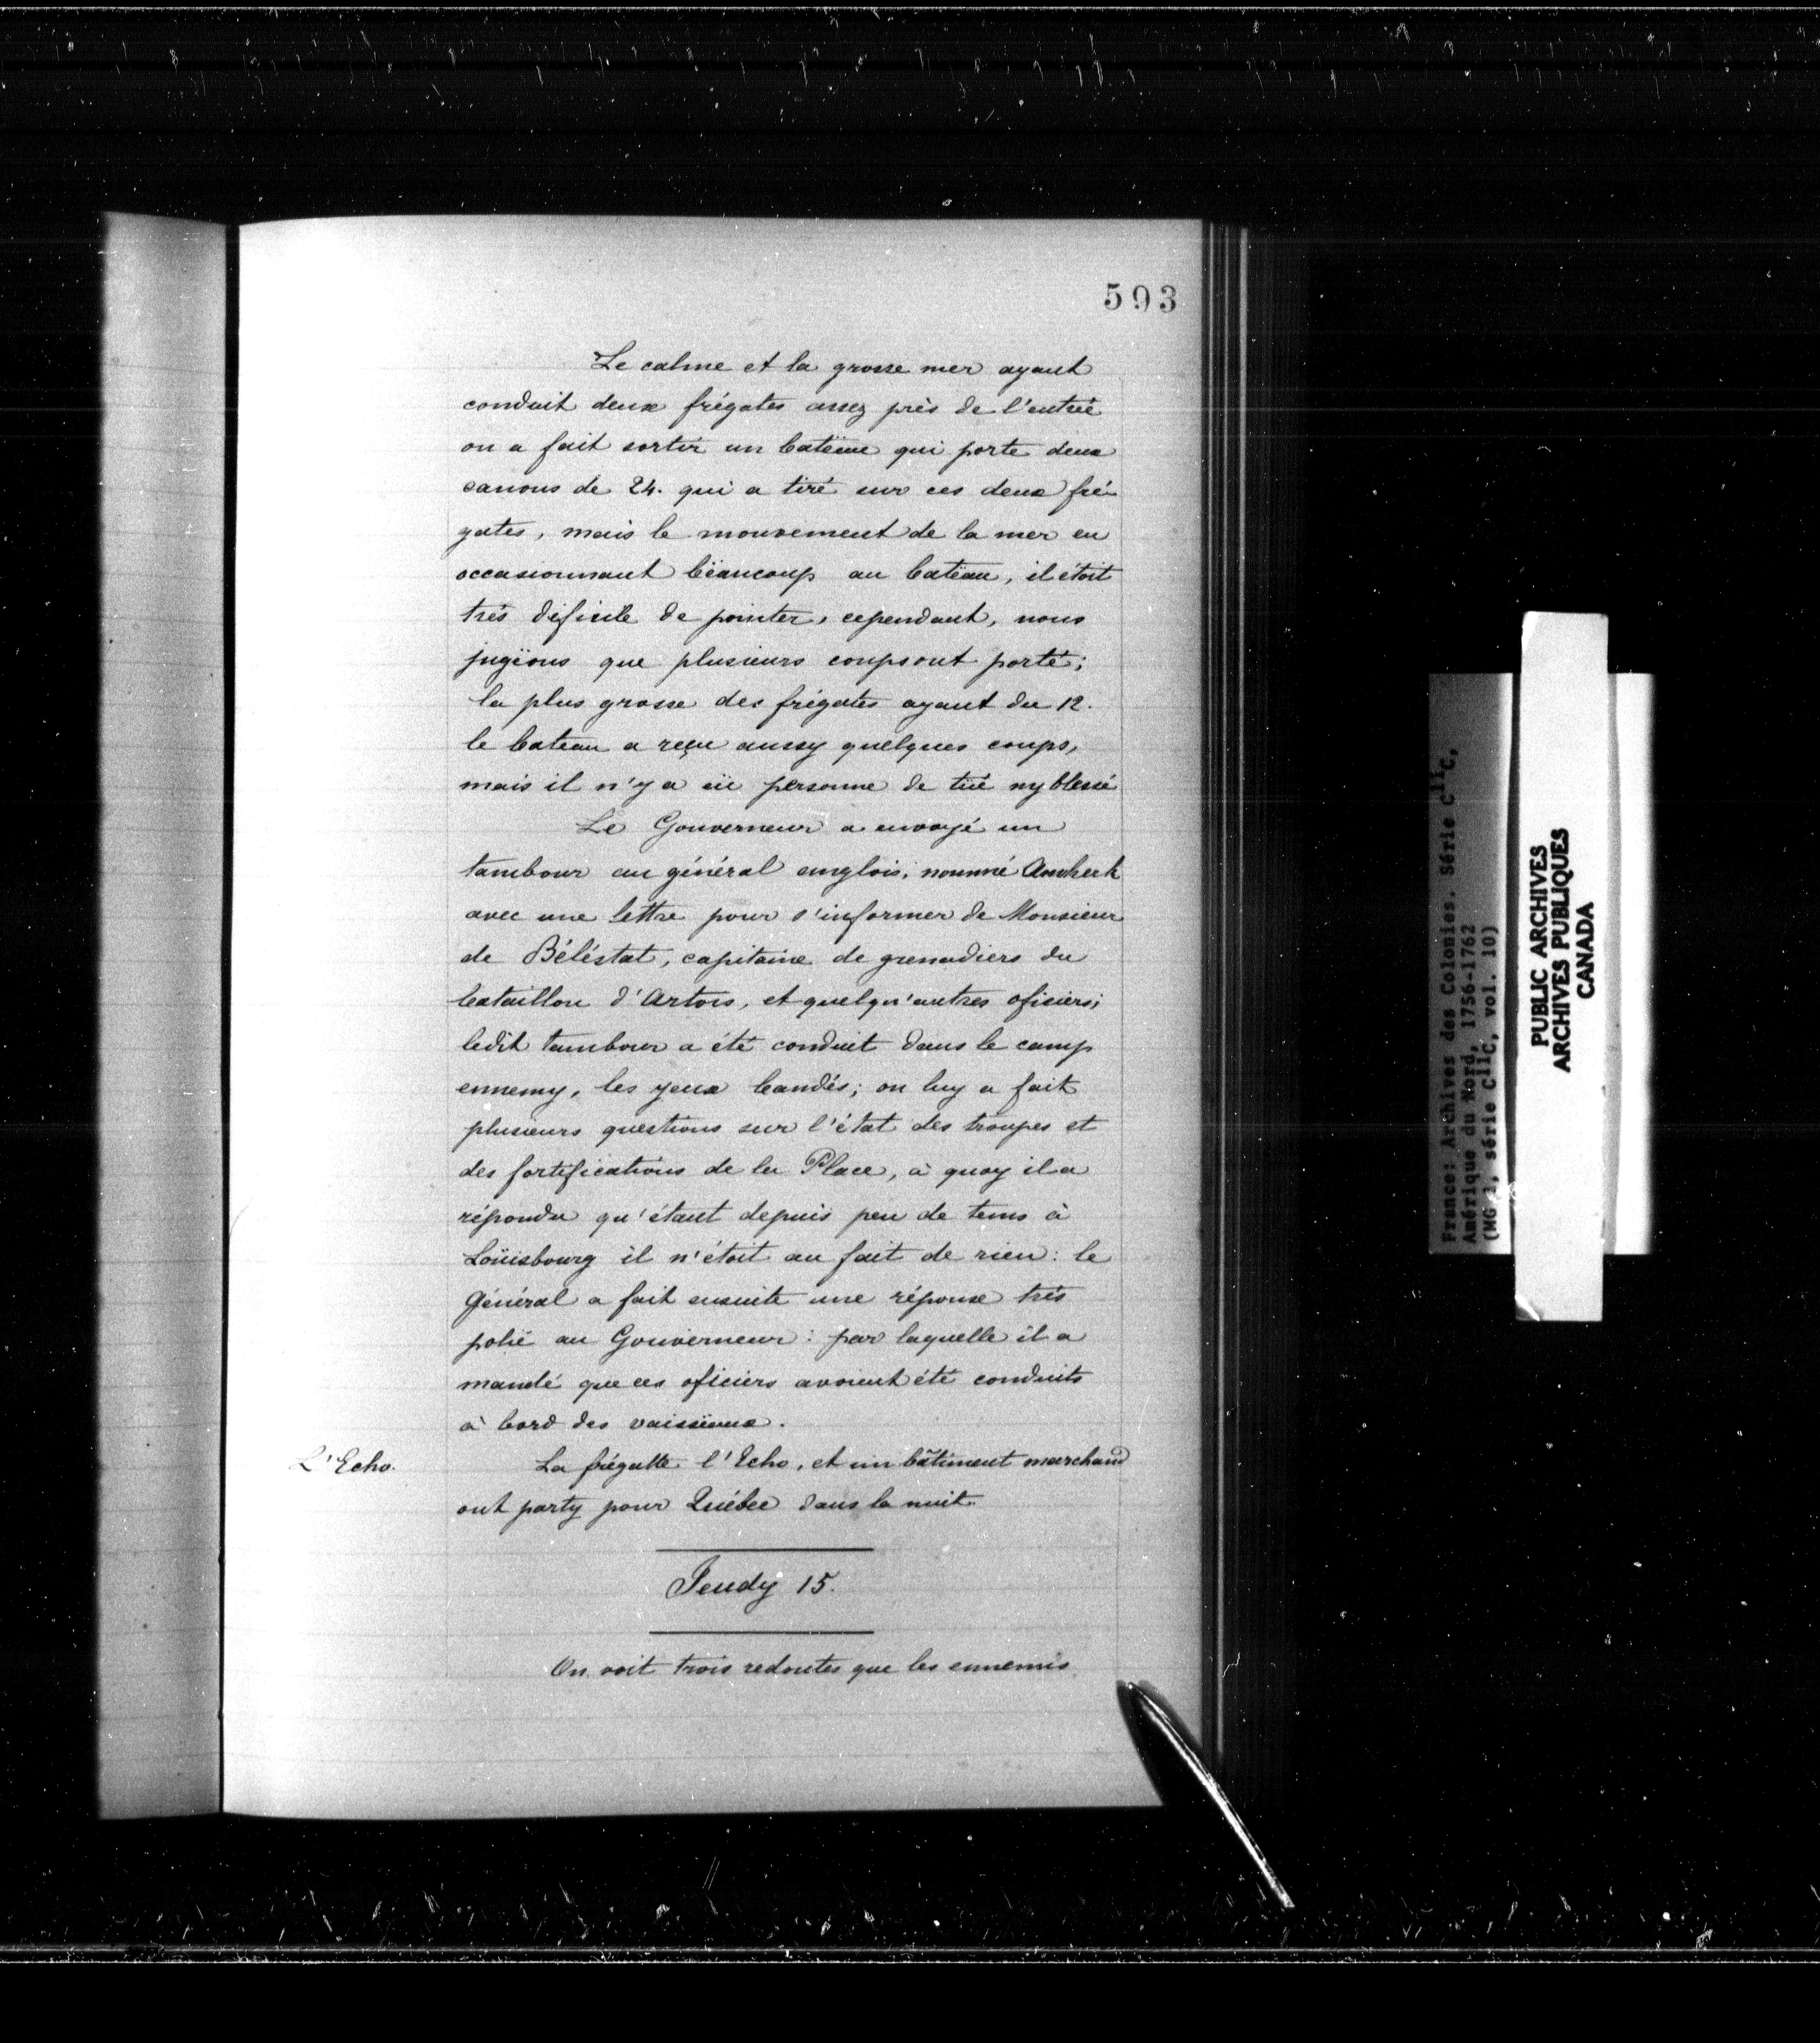 593
Le calme et la grosse mer ayant
conduit deux frégates assez près de l'entrée
on a fait sortir un batëau qui porte deux
canons de 24. qui a tiré sur ces deux fré-
gates, mais le mouvement de la mer en
occasionnant bëaucoup au batëau, il étoit
très dificile de pointer, cependant, nous
jugïons que plusieurs coups ont porté;
la plus grosse des frégates ayant du 12.
le bateau a reçu aussy quelques coups,
mais il n'y a eü personne de tüé ny blessé
Le Gouverneur a envoyé un
tambour au général anglois, nommé Amherh
avec une lettre pour s'informer de Monsieur
de Béléstat, capitaine de grenadiers du
bataillon d'Artois, et quelqu'autres oficiers;
ledit tambour a été conduit dans le camp
ennemy, les yeux bandés; on luy a fait
plusieurs questions sur l'état des troupes et
des fortifications de la Place, à quoy il a
répondu qu'étant depuis peu de tems à
Loüisbourg il n'étoit au fait de rien: le
Général a fait ensuite une réponse très
polië au Gouverneur: par laquelle il a
mandé que ces oficiers avoient été conduits
à bord des vaissëaux.
L'Echo.
La frégatte l'Echo, et un bâtiment marchand
ont party pour Québec dans la nuit.
Jeudy 15.
On voit trois redoutes que les ennemis
France: Archives des Colonies. Série C11C,
Amérique du Nord, 1756-1762
(MG 1, série C11C, vol. 10)
PUBLIC ARCHIVES
ARCHIVES PUBLIQUES
CANADA